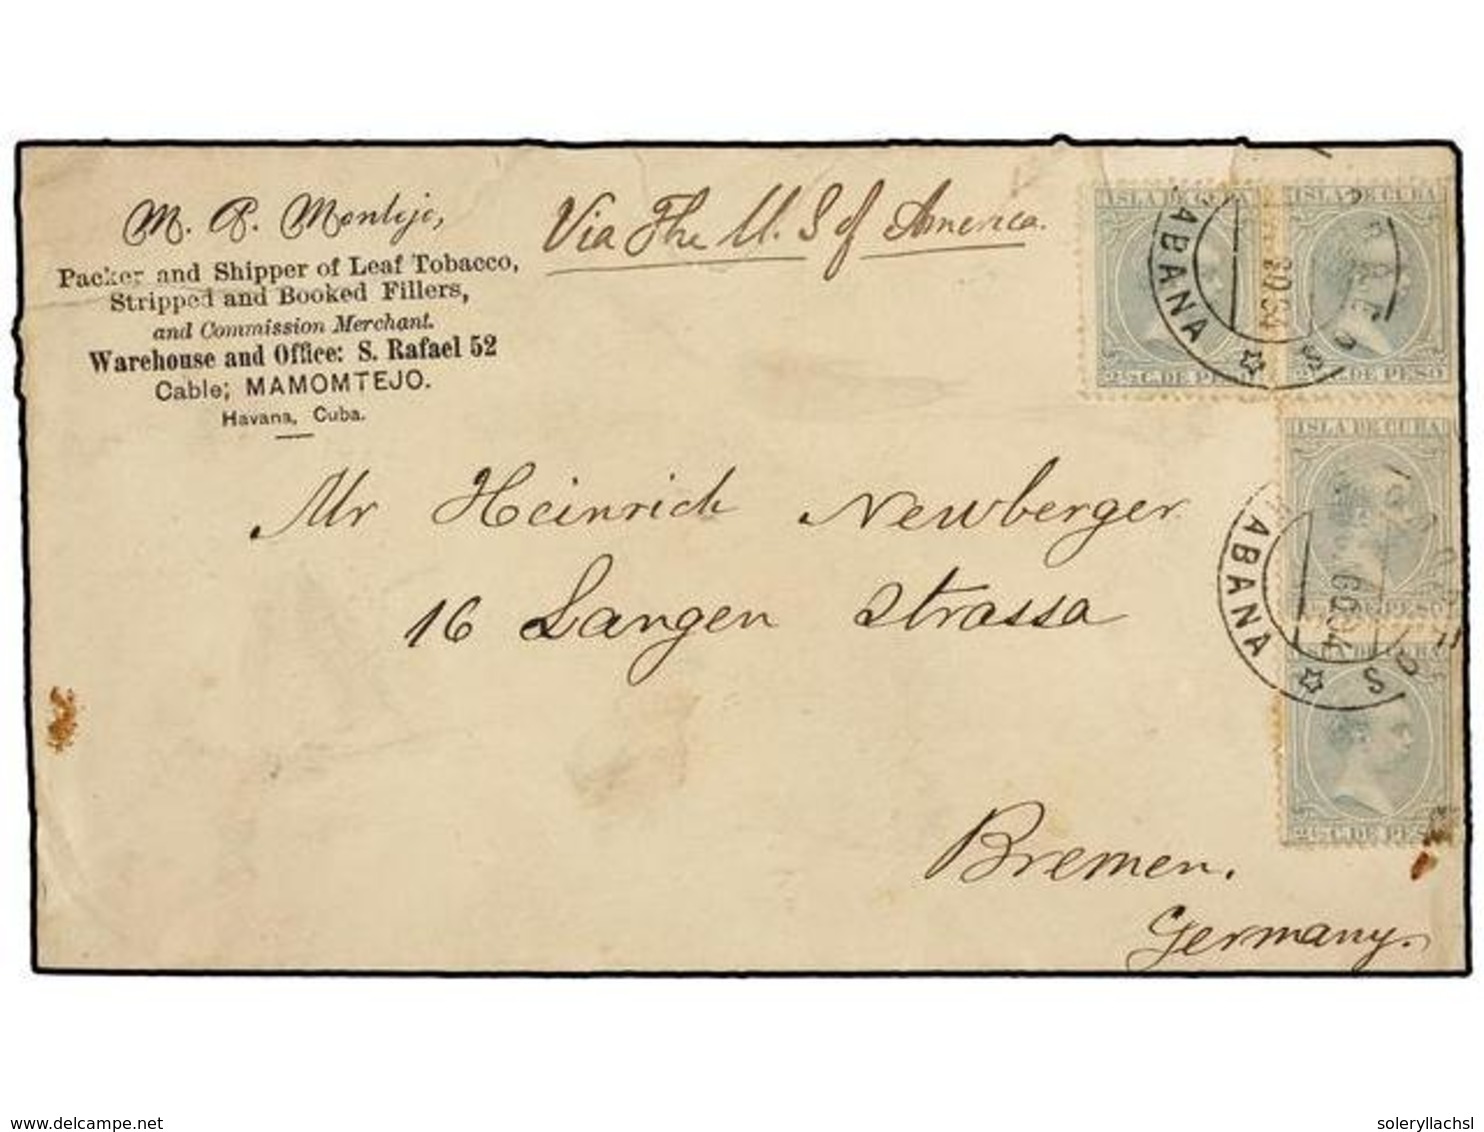 M. P. Montejo,
Packer and Shipper of Leaf Tobacco,
Stripped and Booked Fillers,
and Commission Merchant.
Warehouse and Office: S. Rafael 52
Cable; MAMOMTEJO.
Havana, Cuba.
Via The U. S of America.
ISLA DE CUBA
2½ C. DE PESO
ISLA DE CUBA
C. DE PESO
ABANA
ISLA DE CUBA
DE PESO
ABANA
ISLA DE CUBA
C. DE PESO
Mr Heinrich Newberger
16 Langen Strassa
Bremen.
Germany.
www.delcampe.net
soleryllachsl